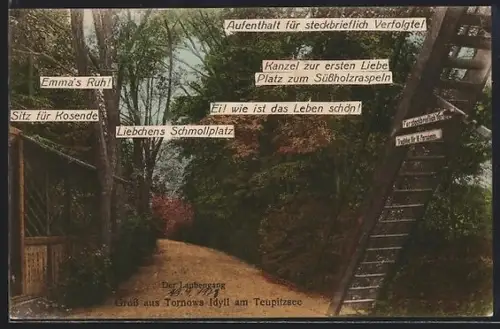 Aufenthalt für steckbrieflich Verfolgte!
Kanzel zur ersten Liebe
Platz zum Süßholzraspeln
Emma's Ruh!
Ei! wie ist das Leben schön!
Sitz für Kosende
Liebchens Schmollplatz
Der Laubengang
Gruß aus Tornows Idyll am Teupitzsee